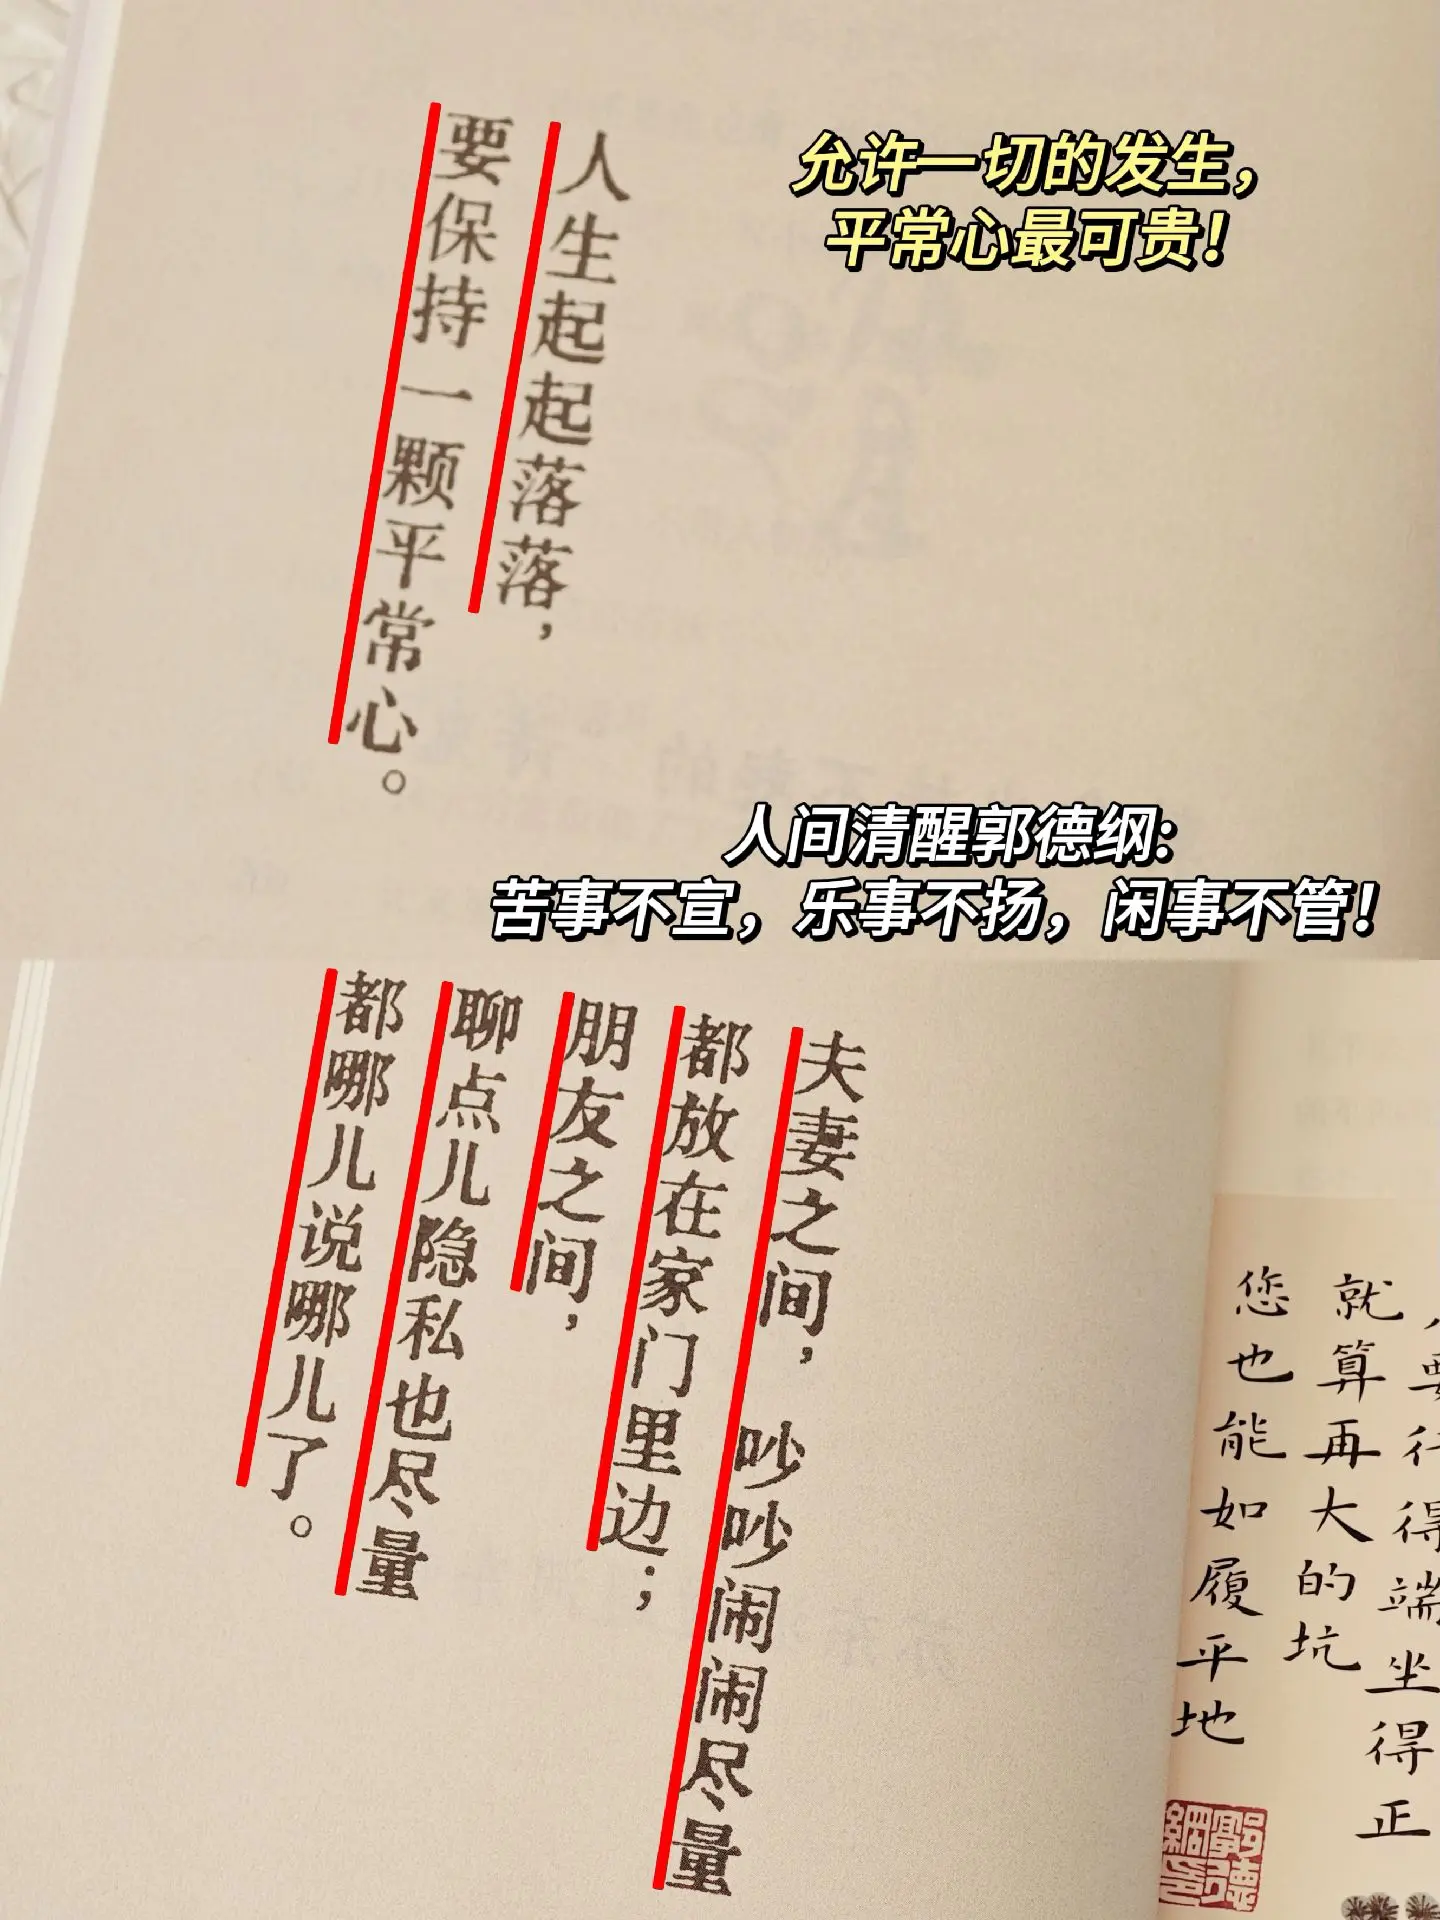 允许一切的发生，
平常心最可贵！
人生起起落落，
要保持一颗平常心。
人间清醒郭德纲：
苦事不宣，乐事不扬，闲事不管！
夫妻之间，吵吵闹闹尽量
都放在家门里边；
朋友之间，
聊点儿隐私也尽量
都哪儿说哪儿了。
要行得端坐得正
就算再大的坑
您也能如履平地
郭德纲印